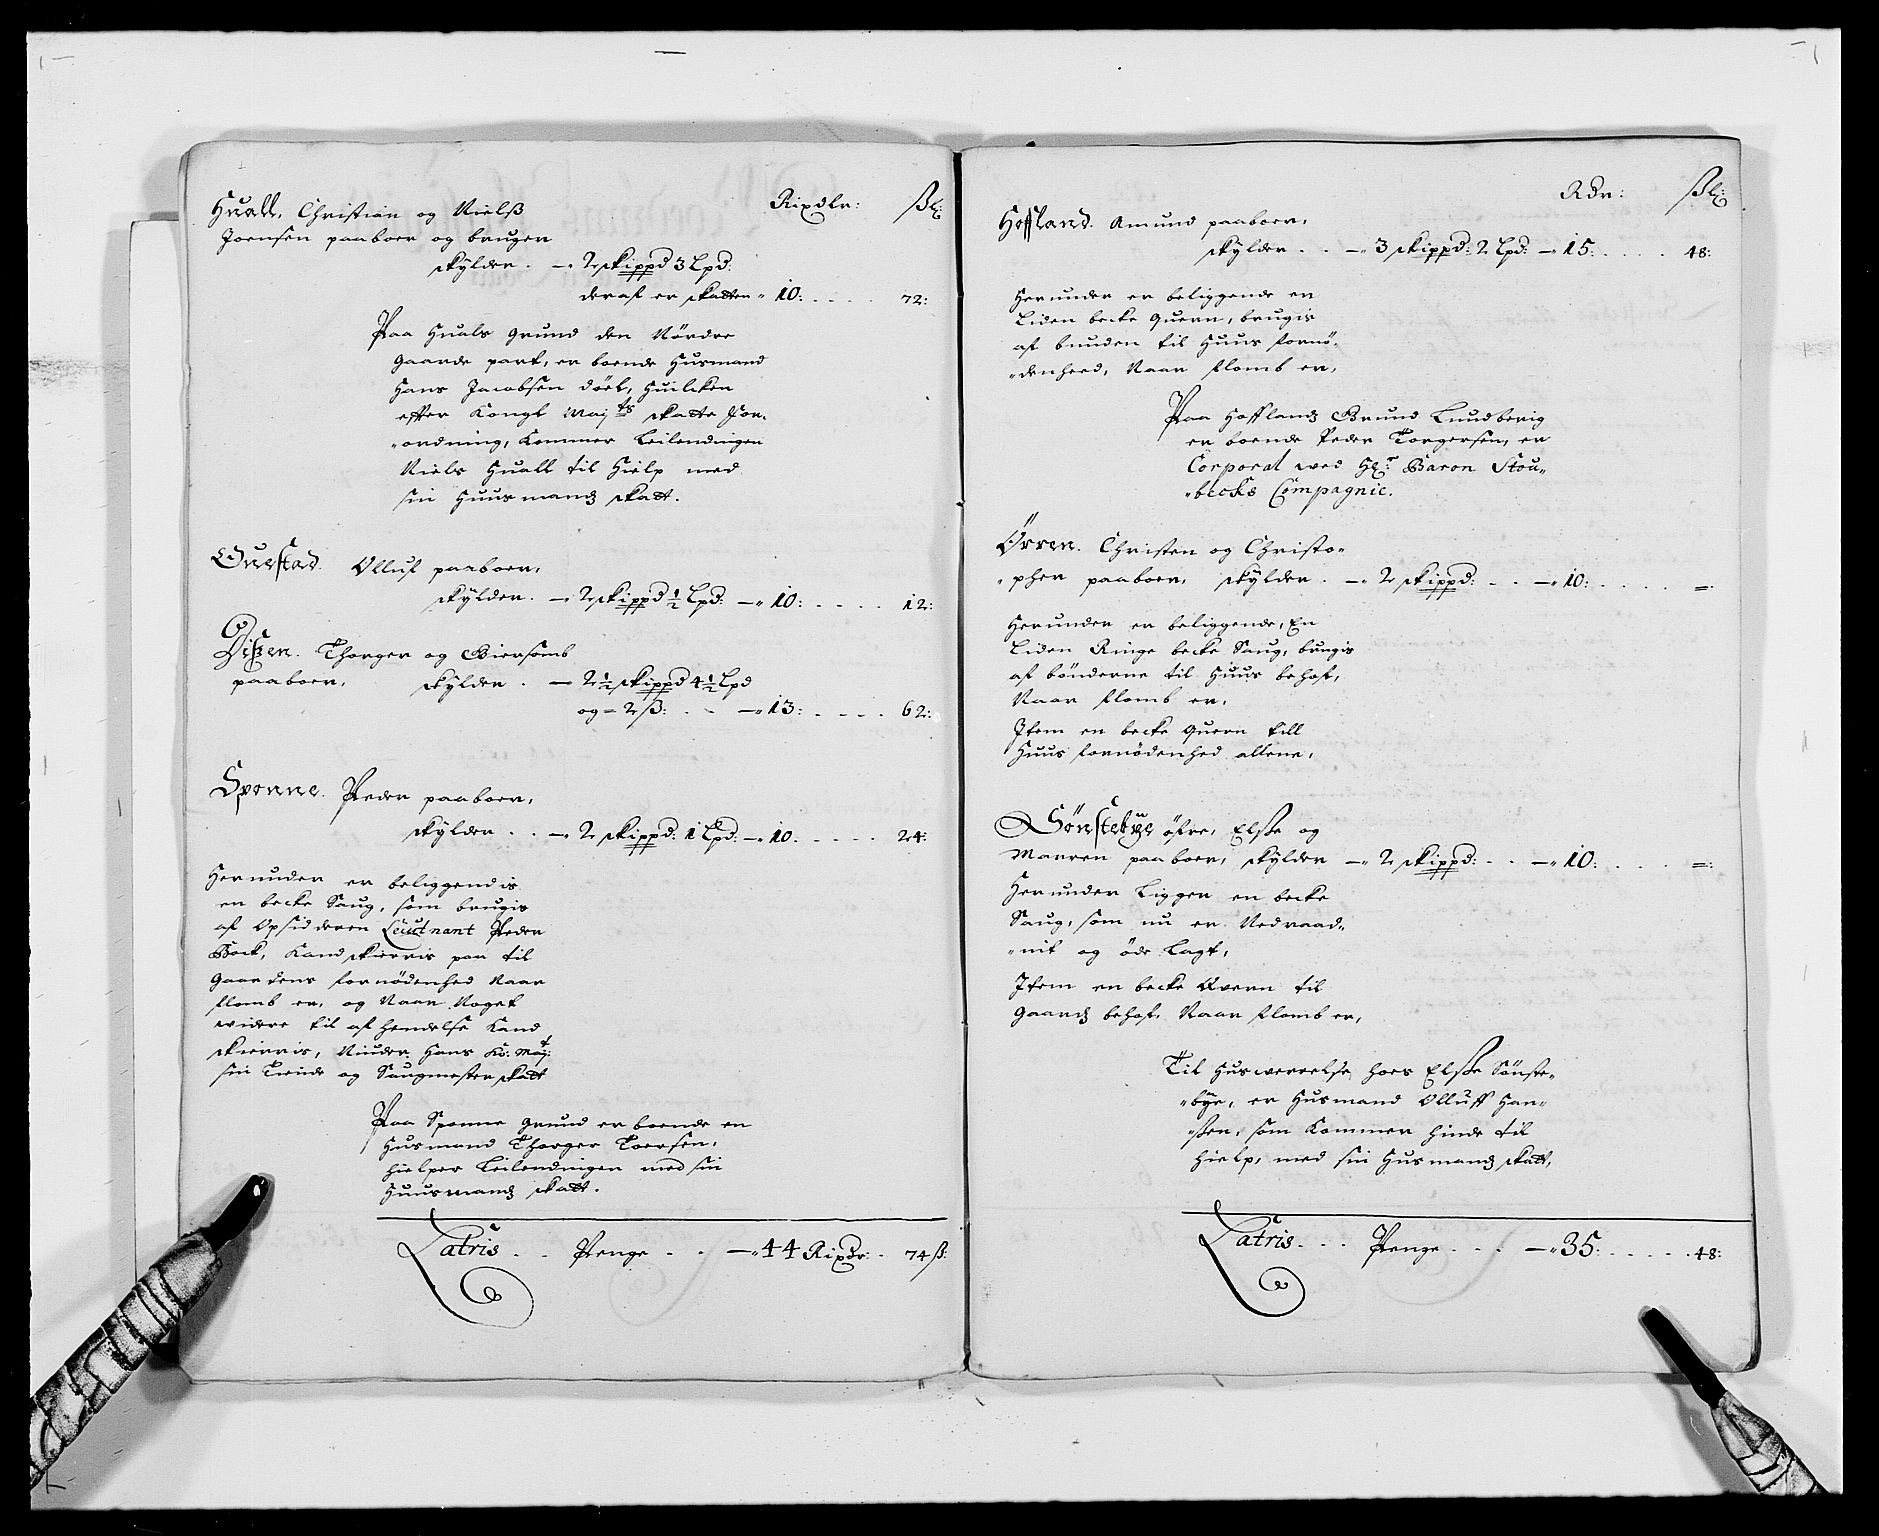 Rixdlr: ßl:
Huall. Christian og Nielß
Joensen paaboer og bruger
skylder. — 2 skippd 3 Lpd:
deraf er skatten " 10: . . . . 72:
Paa Huals grund den Nördre
gaarde part, er boende Husmand
Hans Jacobsen döel, huilcken
efter Kongl Maj ts skatte For„
„ordning, kommer Leilendingen
Niels Huall til Hielp med
sin Huusmandz skatt.
Ollluf paaboer,
skylder. — 2 skippd ½ Lpd: —" 10: . . . . 12:
Dißen. Thorger og Giersomb
paaboer, skylder. — 2½ skippd 4½ Lpd
og = 2 ß: . . —" 13: . . . . 62:
Sponne. Peder paaboer,
skylder . . — 2 skippd: 1 Lpd: —" 10. . . . . 24:
Herunder er beliggendis
en becke Saug, som brugis
af Opsidderen Leutnant Peder
Bock, Kand skierris paa til
gaardens fornödenhed Naar
flomb er, og Naar Noget
widere til afhendelse Kand
skierris, Niuder Hans Ko: Maj:t
sin Tiende og Saugmester skatt
Paa Sponne grund er boende en
Husmand Thorger Toersen,
hielper Leilendingen med sin
Huusmandz skatt.
Latris . . Penge . . —" 44 Rixdr: . 74 ß:
Rdr: ßl:
Hoffland. Amund paaboer,
skylder . . —" 3 skippd: 2 Lpd: —" 15: . . . . 48:
Herunder er beliggende en
Liden becke Quern, brugis
af bunden til Huus fornö„
„denheed, Naar flomb er,
Paa Hofflandz Grund Lundberig
er boende Peder Torgersen, er
Corporal wed H: Baron Stou„
„becks Compagnie.
Örren. Christen og Christo„
„pher paaboer, skylder. —" 2 skippd: . . —" 10: . . . . =:
Herunder er beliggende, En
Liden Ringe becke Saug, brugis
af bönderne til Huus behof,
Naar flomb er,
Item en becke Quern till
Huus fornödenhed allene,
Sönstebye öfre, Elße og
Marren paaboer, skylder —" 2 skippd: . . —" 10: . . . . =:
Herunder Ligger en becke
Saug, som nu er Nedraad„
„nit og öde Lagt,
Item en becke Qvern til
gaardz behof, Naar flomb er,
Til Huswerrelse hoes Elße Sönste„
„bye, er Husmand Olluff Han„
„ßen, som Kommer hinde til
Hielp, med sin Husmandz skatt,
Latris. . . Penge . . . —" 35: . . . . . 48: